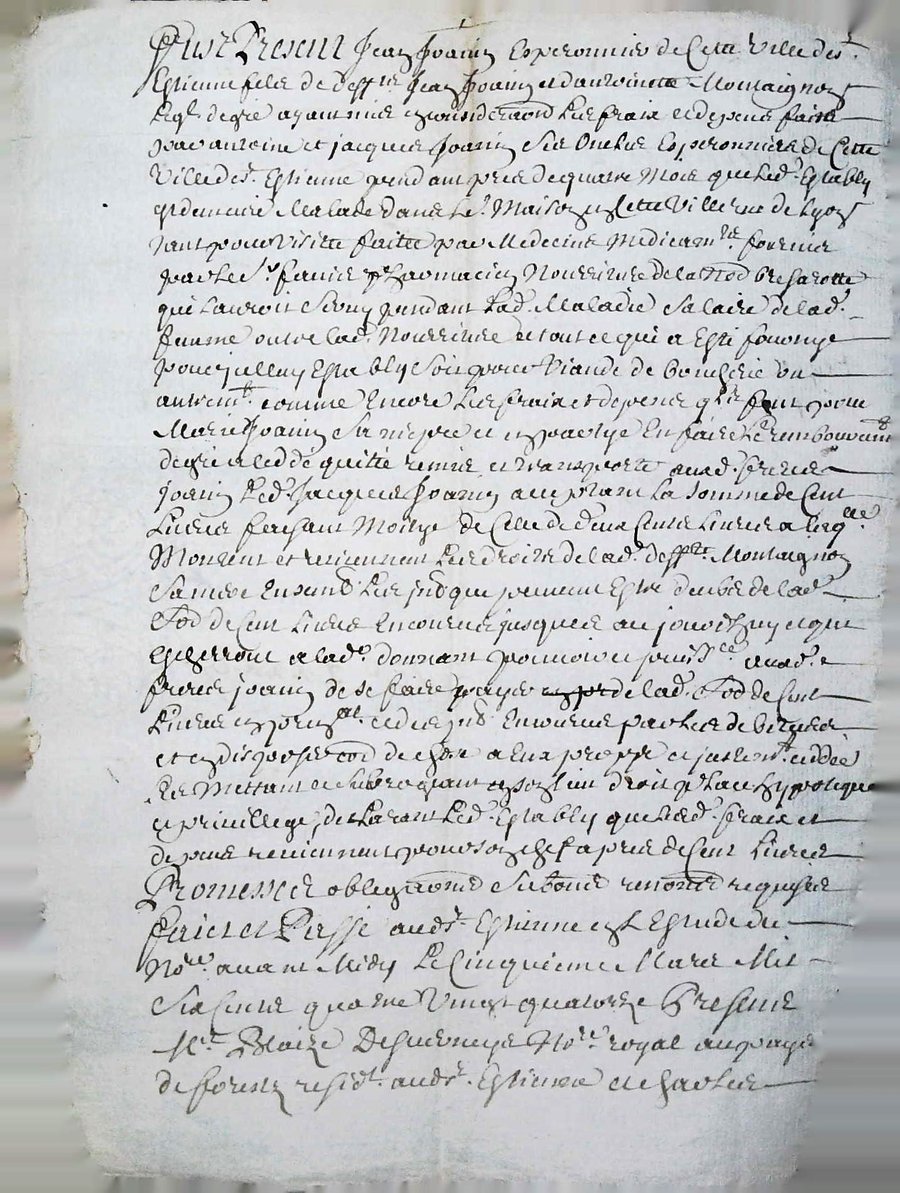 Fust Present Jean Joanin Esperonnier de Cette Ville de St
Estienne filz de deffts Jean Joanin et dantoinette Montaignon
Leql de gré ayant mis en consideraon Les fraix et depens faitz
par antoine et jacques Joanin Ses Oncles Esperonniers de Cette
Ville de St Estienne pendant pres de quatre Mois que Led. Estably
Est demeuré Malade dans Le. Maison en Cette Ville rue de Lyon
Tant pour Visitte faitte par Medecins Medicamts fournis
par Le Sr pharmacien Nourriture de la
qui Lauroit Servy pendant Lad. Maladie Salaire de lad.
femme outre lad. Nourriture et tout ce qui a Esté fourny
pour jcelluy Estably Soit pour Viande de boucherie ou
autremt. comme Encore Les fraix et depens quilz font pour
Marie Joanin Sa et en partye En faire Le remboursemt
de gré a cedé quitté remis et transporté ausd. freres
Joanin Led. Jacques Joanin acceptant La Somme de Cent
Livres faisant Moitye de Celle de deux Cents Livres a laqlle
Montent et reviennent Les droits de lad. deffte. Montaignon
Sa mere Ensemb Les jntz qui peuvent Estre deubz de lad.
So𝑒 de Cent Livres Encourus jusques aujourdhuy et qui
Escherront a lad. donnant pouvoir et puissce ausd.
freres joanin de Se faire payer de lad. Soe de Cent
Livres en prinal et des jntz Encourus par Les debiteurs
et en disposer coe de chose a Eux propre et justemt. cedée
Les Mettant et Subrogeant en Son lieu droit place hypoteque
et privillege, declarant Led. Estably que Lesd. fraix et
depens reviennent pour Son chef a pres de Cent Livres
Promesses obligaons Soubmis renonce requises
faict et Passé aud St. Estienne en L Estude du
Nore. avant Midy Le Cinquieme Mars Mil
Six Cents quatre Vingt quatorze Presents
Me. Blaize Desverneys Nore. royal au pays
de forestz residt. aud St. Estienne et charles